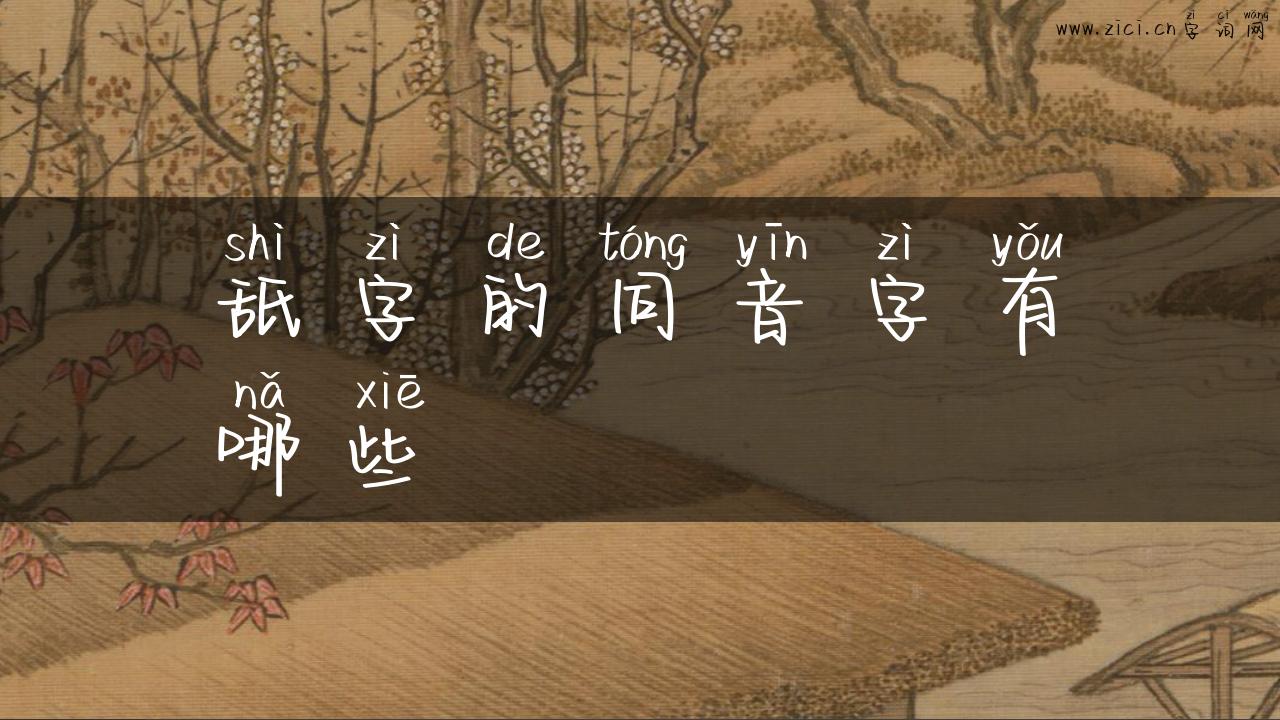 zì cí wǎng
www.zici.cn 字词网
shì zì de tóng yīn zì yǒu
舐字的同音字有
nǎ xiē
哪些